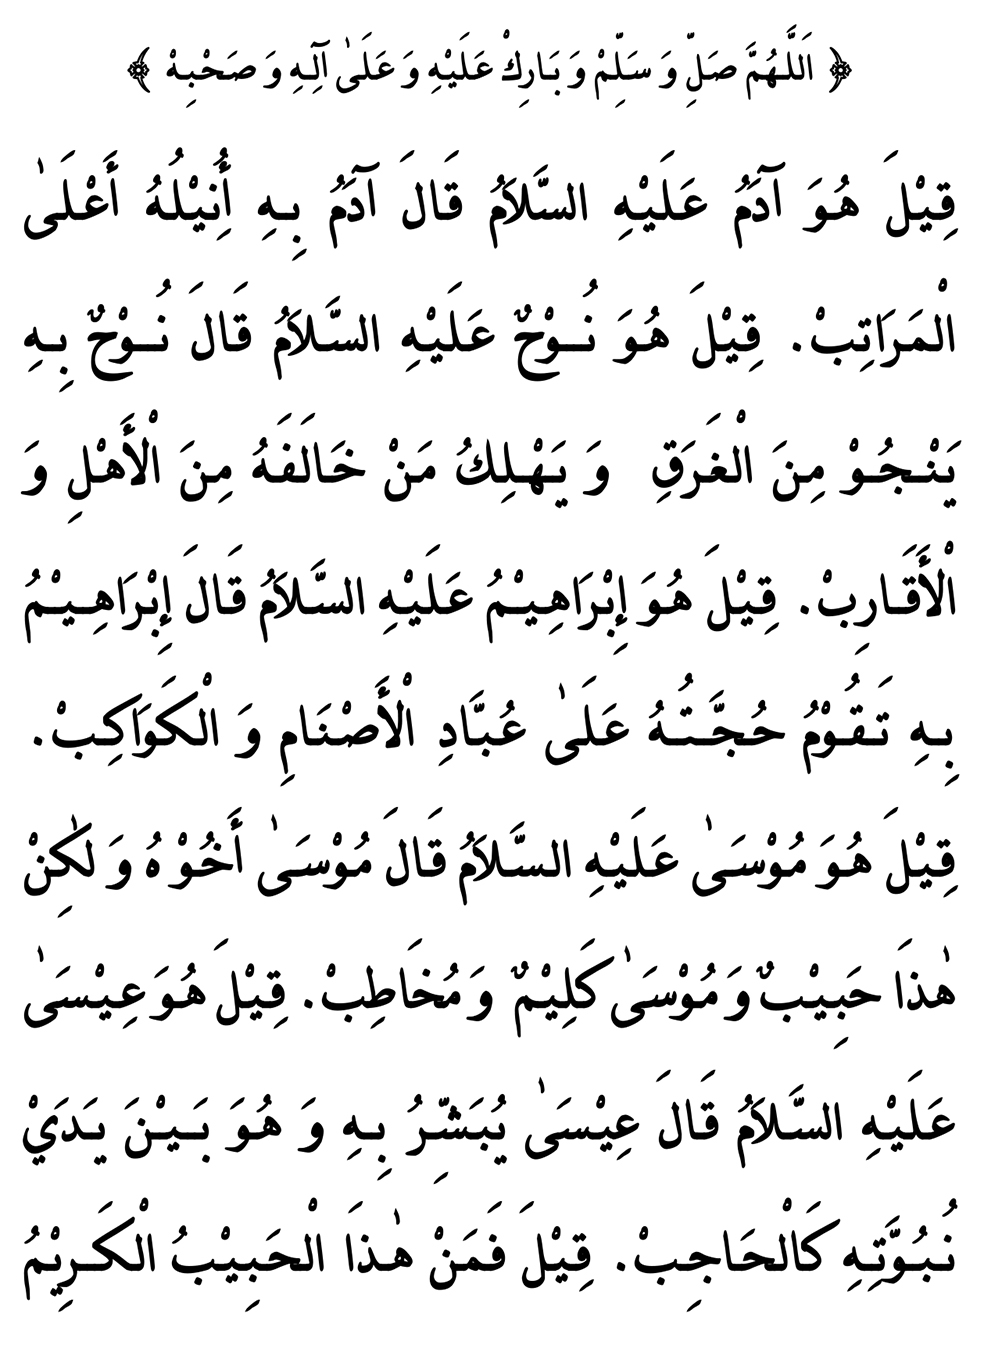 ﴿ اَللَّهُمَّ صَلِّ وَ سَلِّمْ وَ بَارِكْ عَلَيْهِ وَ عَلَىٰ آلِهِ وَ صَحْبِهْ ﴾
قِيْلَ هُوَ آدَمُ عَلَيْهِ السَّلاَمُ قَالَ آدَمُ بِهِ أُنِيْلُهُ أَعْلَىٰ
الْمَرَاتِبْ. قِيْلَ هُوَ نُوْحٌ عَلَيْهِ السَّلاَمُ قَالَ نُوْحٌ بِهِ
يَنْجُوْ مِنَ الْغَرَقِ وَ يَهْلِكُ مَنْ خَالَفَهُ مِنَ الْأَهْلِ وَ
الْأَقَارِبْ. قِيْلَ هُوَ إِبْرَاهِيْمُ عَلَيْهِ السَّلاَمُ قَالَ إِبْرَاهِيْمُ
بِهِ تَقُوْمُ حُجَّتُهُ عَلَىٰ عُبَّادِ الْأَصْنَامِ وَ الْكَوَاكِبْ.
قِيْلَ هُوَ مُوْسَىٰ عَلَيْهِ السَّلاَمُ قَالَ مُوْسَىٰ أَخُوْهُ وَ لٰكِنْ
هٰذَا حَبِيْبٌ وَ مُوْسَىٰ كَلِيْمٌ وَ مُخَاطِبْ. قِيْلَ هُوَ عِيْسَىٰ
عَلَيْهِ السَّلاَمُ قَالَ عِيْسَىٰ يُبَشِّرُ بِهِ وَ هُوَ بَيْنَ يَدَيْ
نُبُوَّتِهِ كَالْحَاجِبْ. قِيْلَ فَمَنْ هٰذَا الْحَبِيْبُ الْكَرِيْمُ